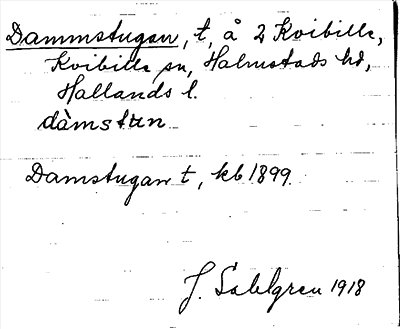 Dammstugan, t, å 2 Kvibille,
Kvibille sn, Halmstads hd,
Hallands l.
dàmstun
Damstugan t, kb 1899.
J. Sahlgren 1918